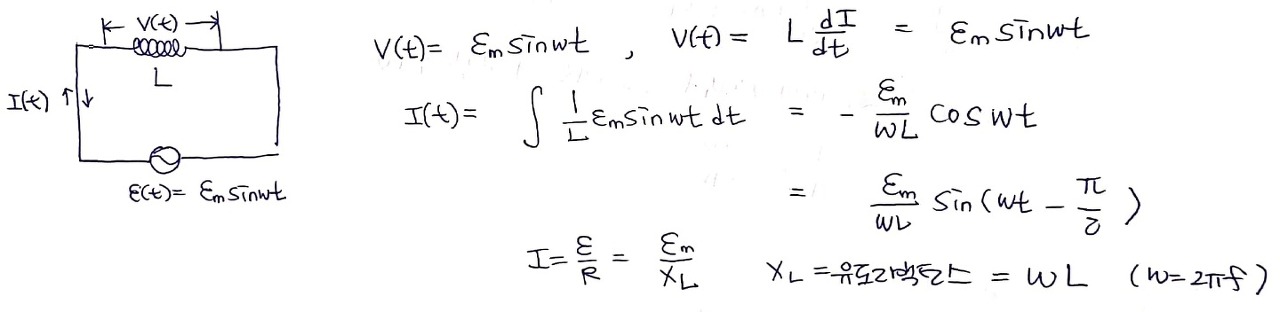 V(t)
L
I(t) ↑↓
ε(t)= εm sinwt
V(t)= εm sinwt , V(t)= L dI/dt = εm sinwt
I(t)= ∫ 1/L εm sinwt dt = - εm/wL cos wt
= εm/wL sin(wt - π/2)
I= ε/R = εm/XL XL =유도리액턴스 = wL (w=2πf)